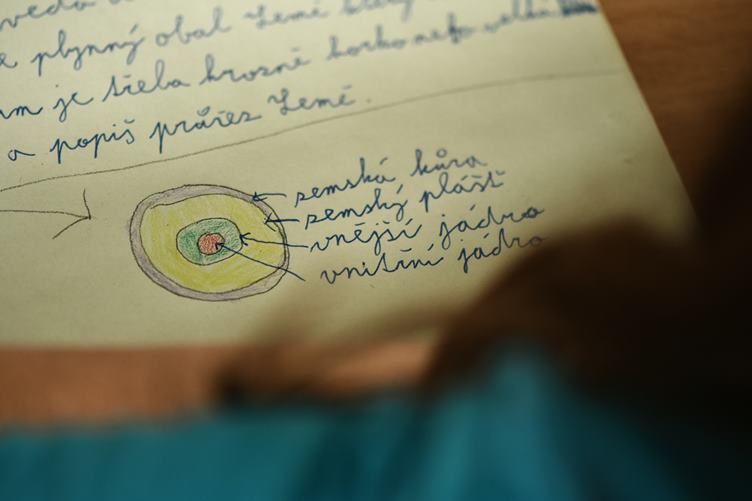 plynný obal Země
je třeba hrozně horko nebo
a popiš průřez Země.
zemská kůra
zemský plášť
vnější jádro
vnitřní jádro